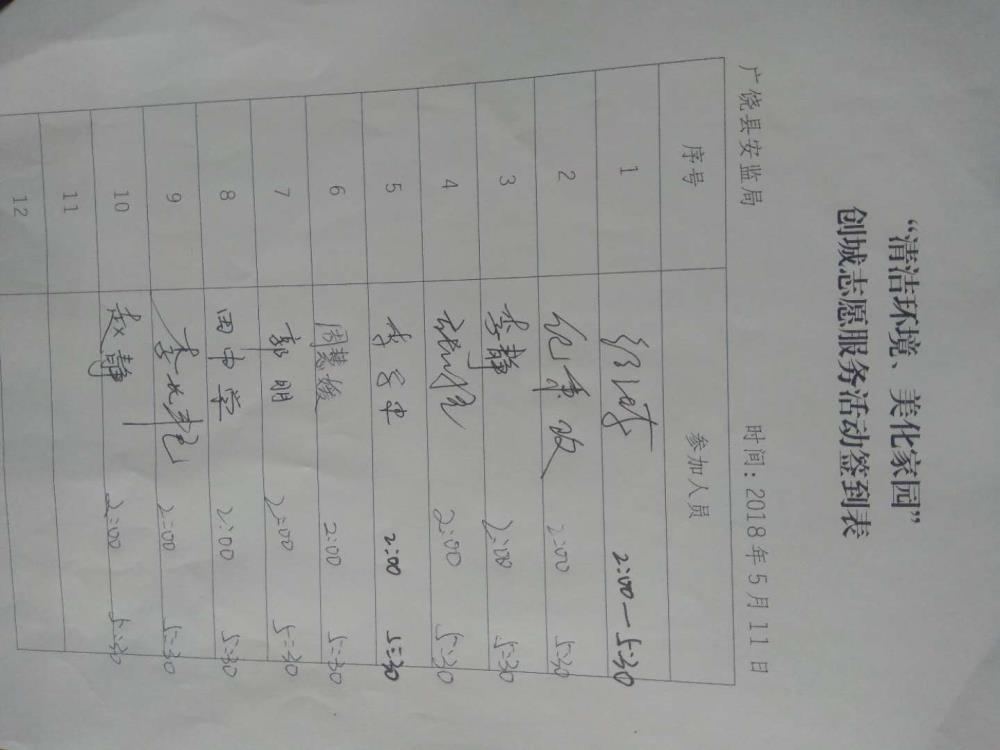 “清洁环境、美化家园”
创城志愿服务活动签到表
广饶县安监局 时间：2018年5月11日
序号 参加人员
1 2:00—5:30
2 2:00 5:30
3 李静 2:00 5:30
4 2:00 5:30
5 2:00 5:30
6 周慧媛 2:00 5:30
7 郭明 2:00 5:30
8 田中学 2:00 5:30
9 2:00 5:30
10 赵静 2:00 5:30
11
12